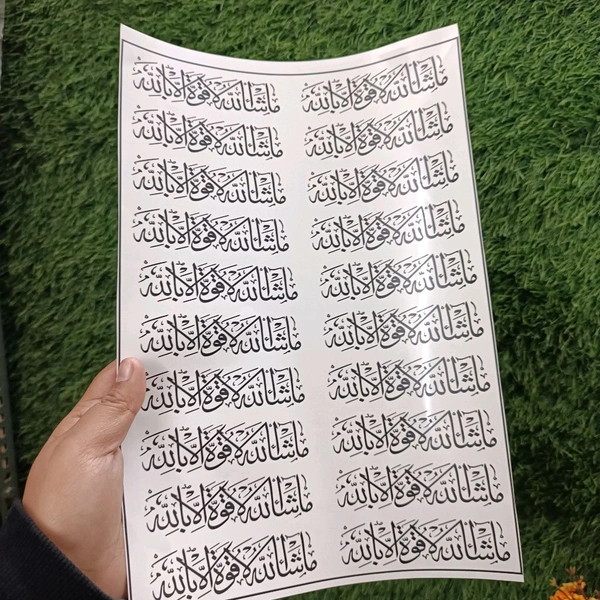 ما شاء الله لا قوة إلا بالله ما شاء الله لا قوة إلا بالله
ما شاء الله لا قوة إلا بالله ما شاء الله لا قوة إلا بالله
ما شاء الله لا قوة إلا بالله ما شاء الله لا قوة إلا بالله
ما شاء الله لا قوة إلا بالله ما شاء الله لا قوة إلا بالله
ما شاء الله لا قوة إلا بالله ما شاء الله لا قوة إلا بالله
ما شاء الله لا قوة إلا بالله ما شاء الله لا قوة إلا بالله
ما شاء الله لا قوة إلا بالله ما شاء الله لا قوة إلا بالله
ما شاء الله لا قوة إلا بالله ما شاء الله لا قوة إلا بالله
ما شاء الله لا قوة إلا بالله ما شاء الله لا قوة إلا بالله
ما شاء الله لا قوة إلا بالله ما شاء الله لا قوة إلا بالله